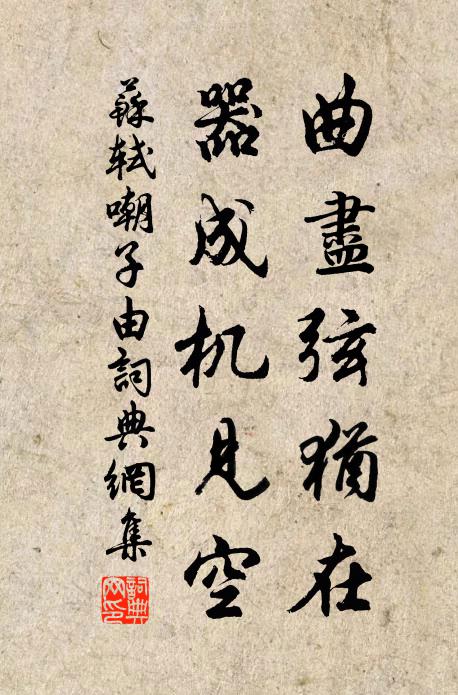 曲盡弦猶在
器成机見空
蘇軾嘲子由詞典網集
詞典
网印